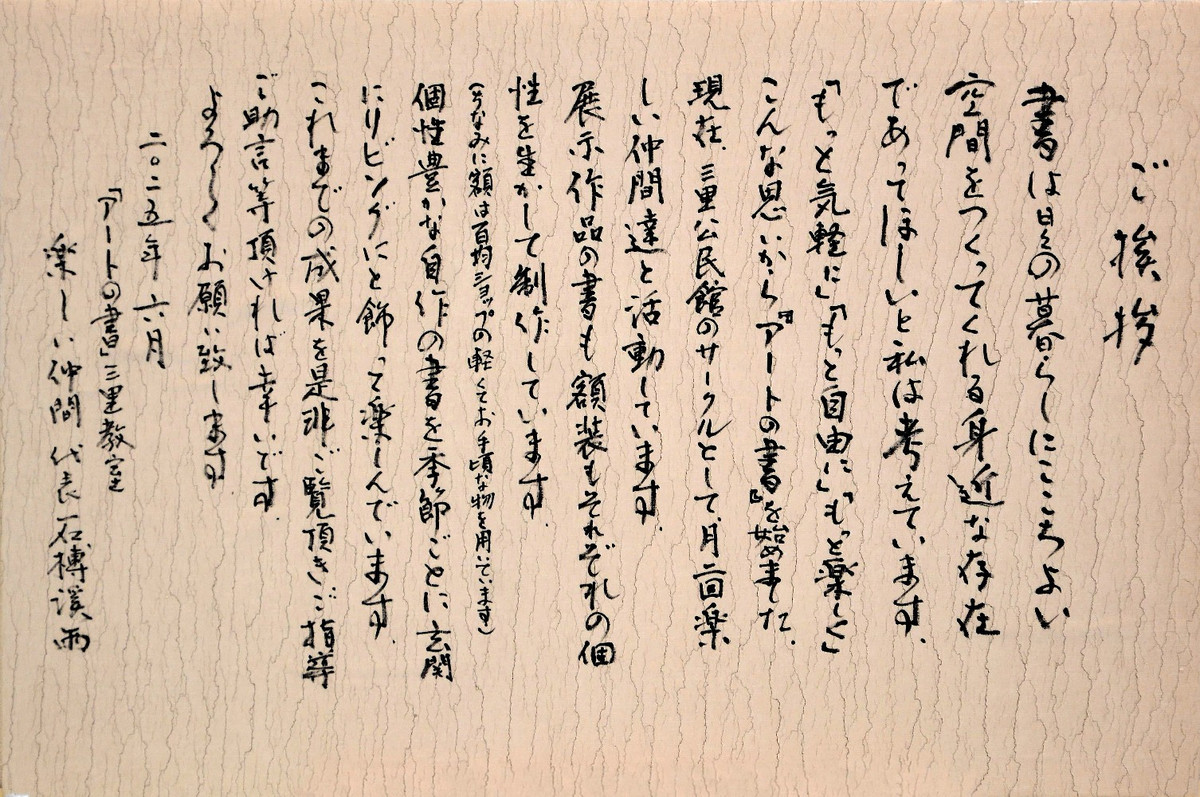 ご挨拶
書は日々の暮らしにここちよい
空間をつくってくれる身近な存在
であってほしいと私は考えています。
「もっと気軽に」「もっと自由に」「もっと楽しく」
こんな思いから『アートの書』を始めました。
現在、三里公民館のサークルとして、月二回楽
しい仲間達と活動しています。
展示作品の書も額装もそれぞれの個
性を生かして制作しています。
(ちなみに額は百均ショップの軽くてお手頃な物を用いています)
個性豊かな自作の書を季節ごとに玄関
にリビングにと飾って楽しんでいます。
これまでの成果を是非ご覧頂きご指導
ご助言等頂ければ幸いです。
よろしくお願い致します
二〇二五年 六月
「アートの書」三里教室
楽しい仲間 代表 石榑溪雨